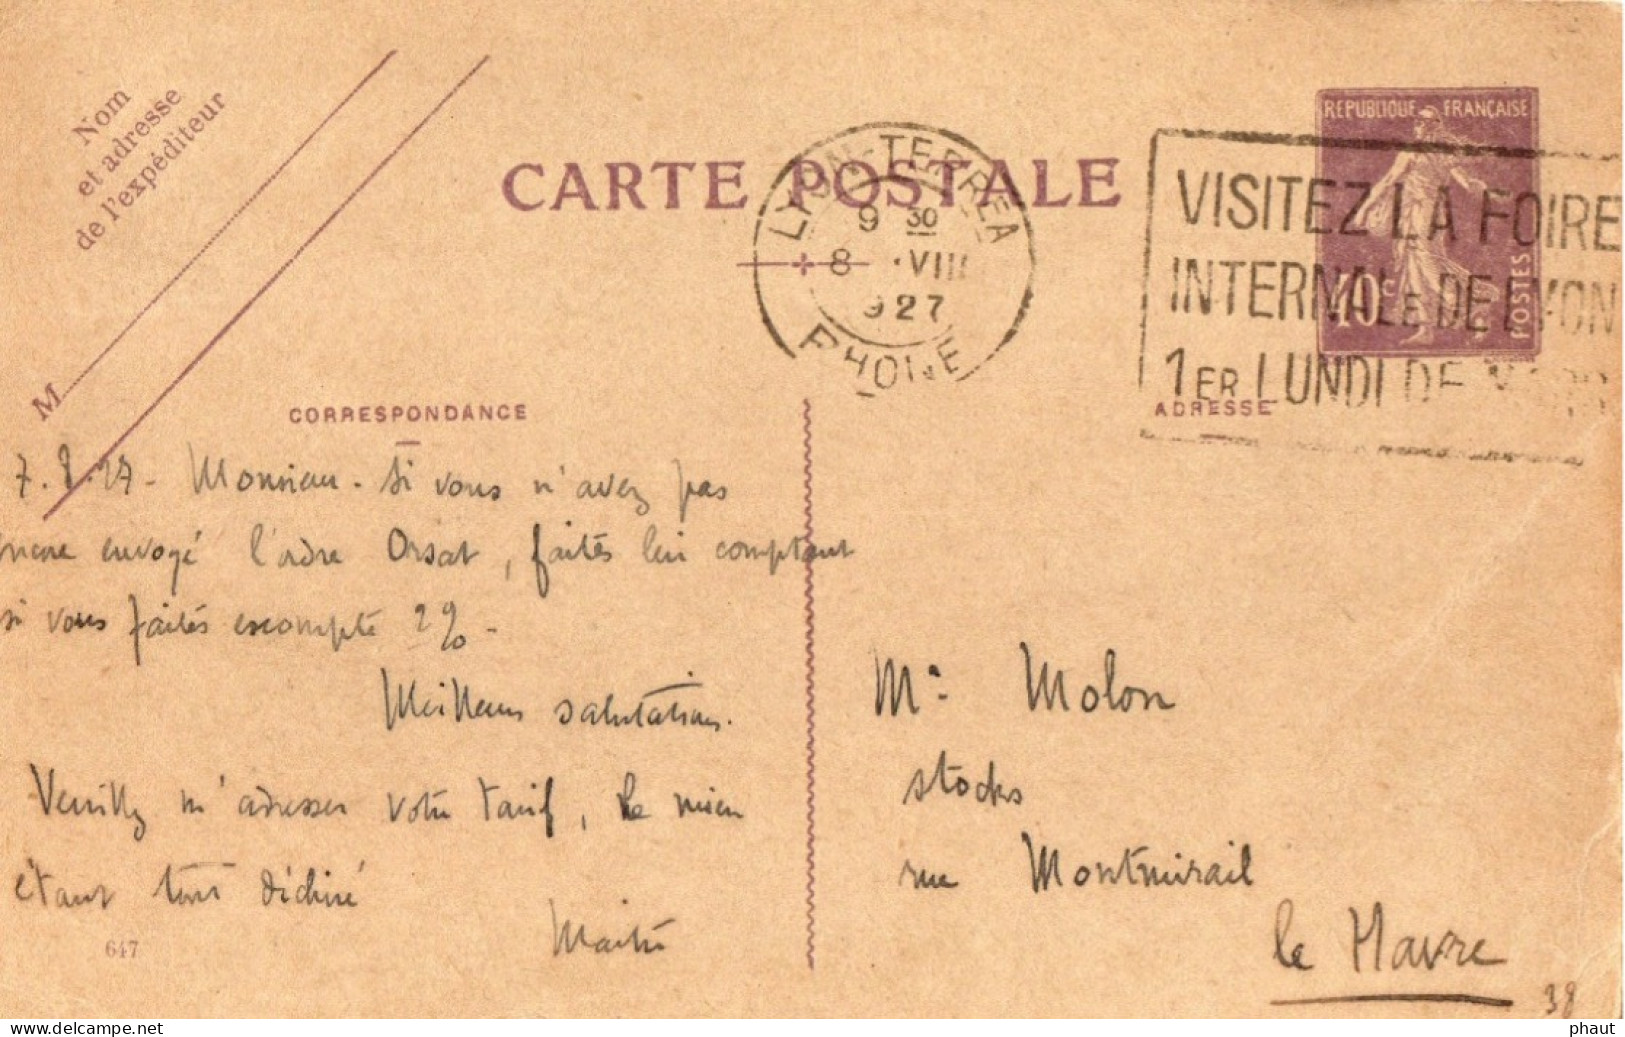 Nom
et adresse
de l'expéditeur
M
CARTE POSTALE
LYON-TERREAUX
9 30
8 ·VIII
927
RHONE
REPUBLIQUE FRANÇAISE
40c
POSTES
VISITEZ LA FOIRE
INTERNALE DE LYON
1ER LUNDI DE MARS
CORRESPONDANCE
ADRESSE
7.8.27- Monsieur. Si vous n'avez pas
encore envoyé l'ordre Orsat, faites lui comptant
si vous faites escompte 2% -
Meilleurs salutations.
Veuillez m'adresser votre tarif, le mien
étant tout déchiré
647
Mr Molon
stocks
rue Montmirail
le Havre
38
phaut